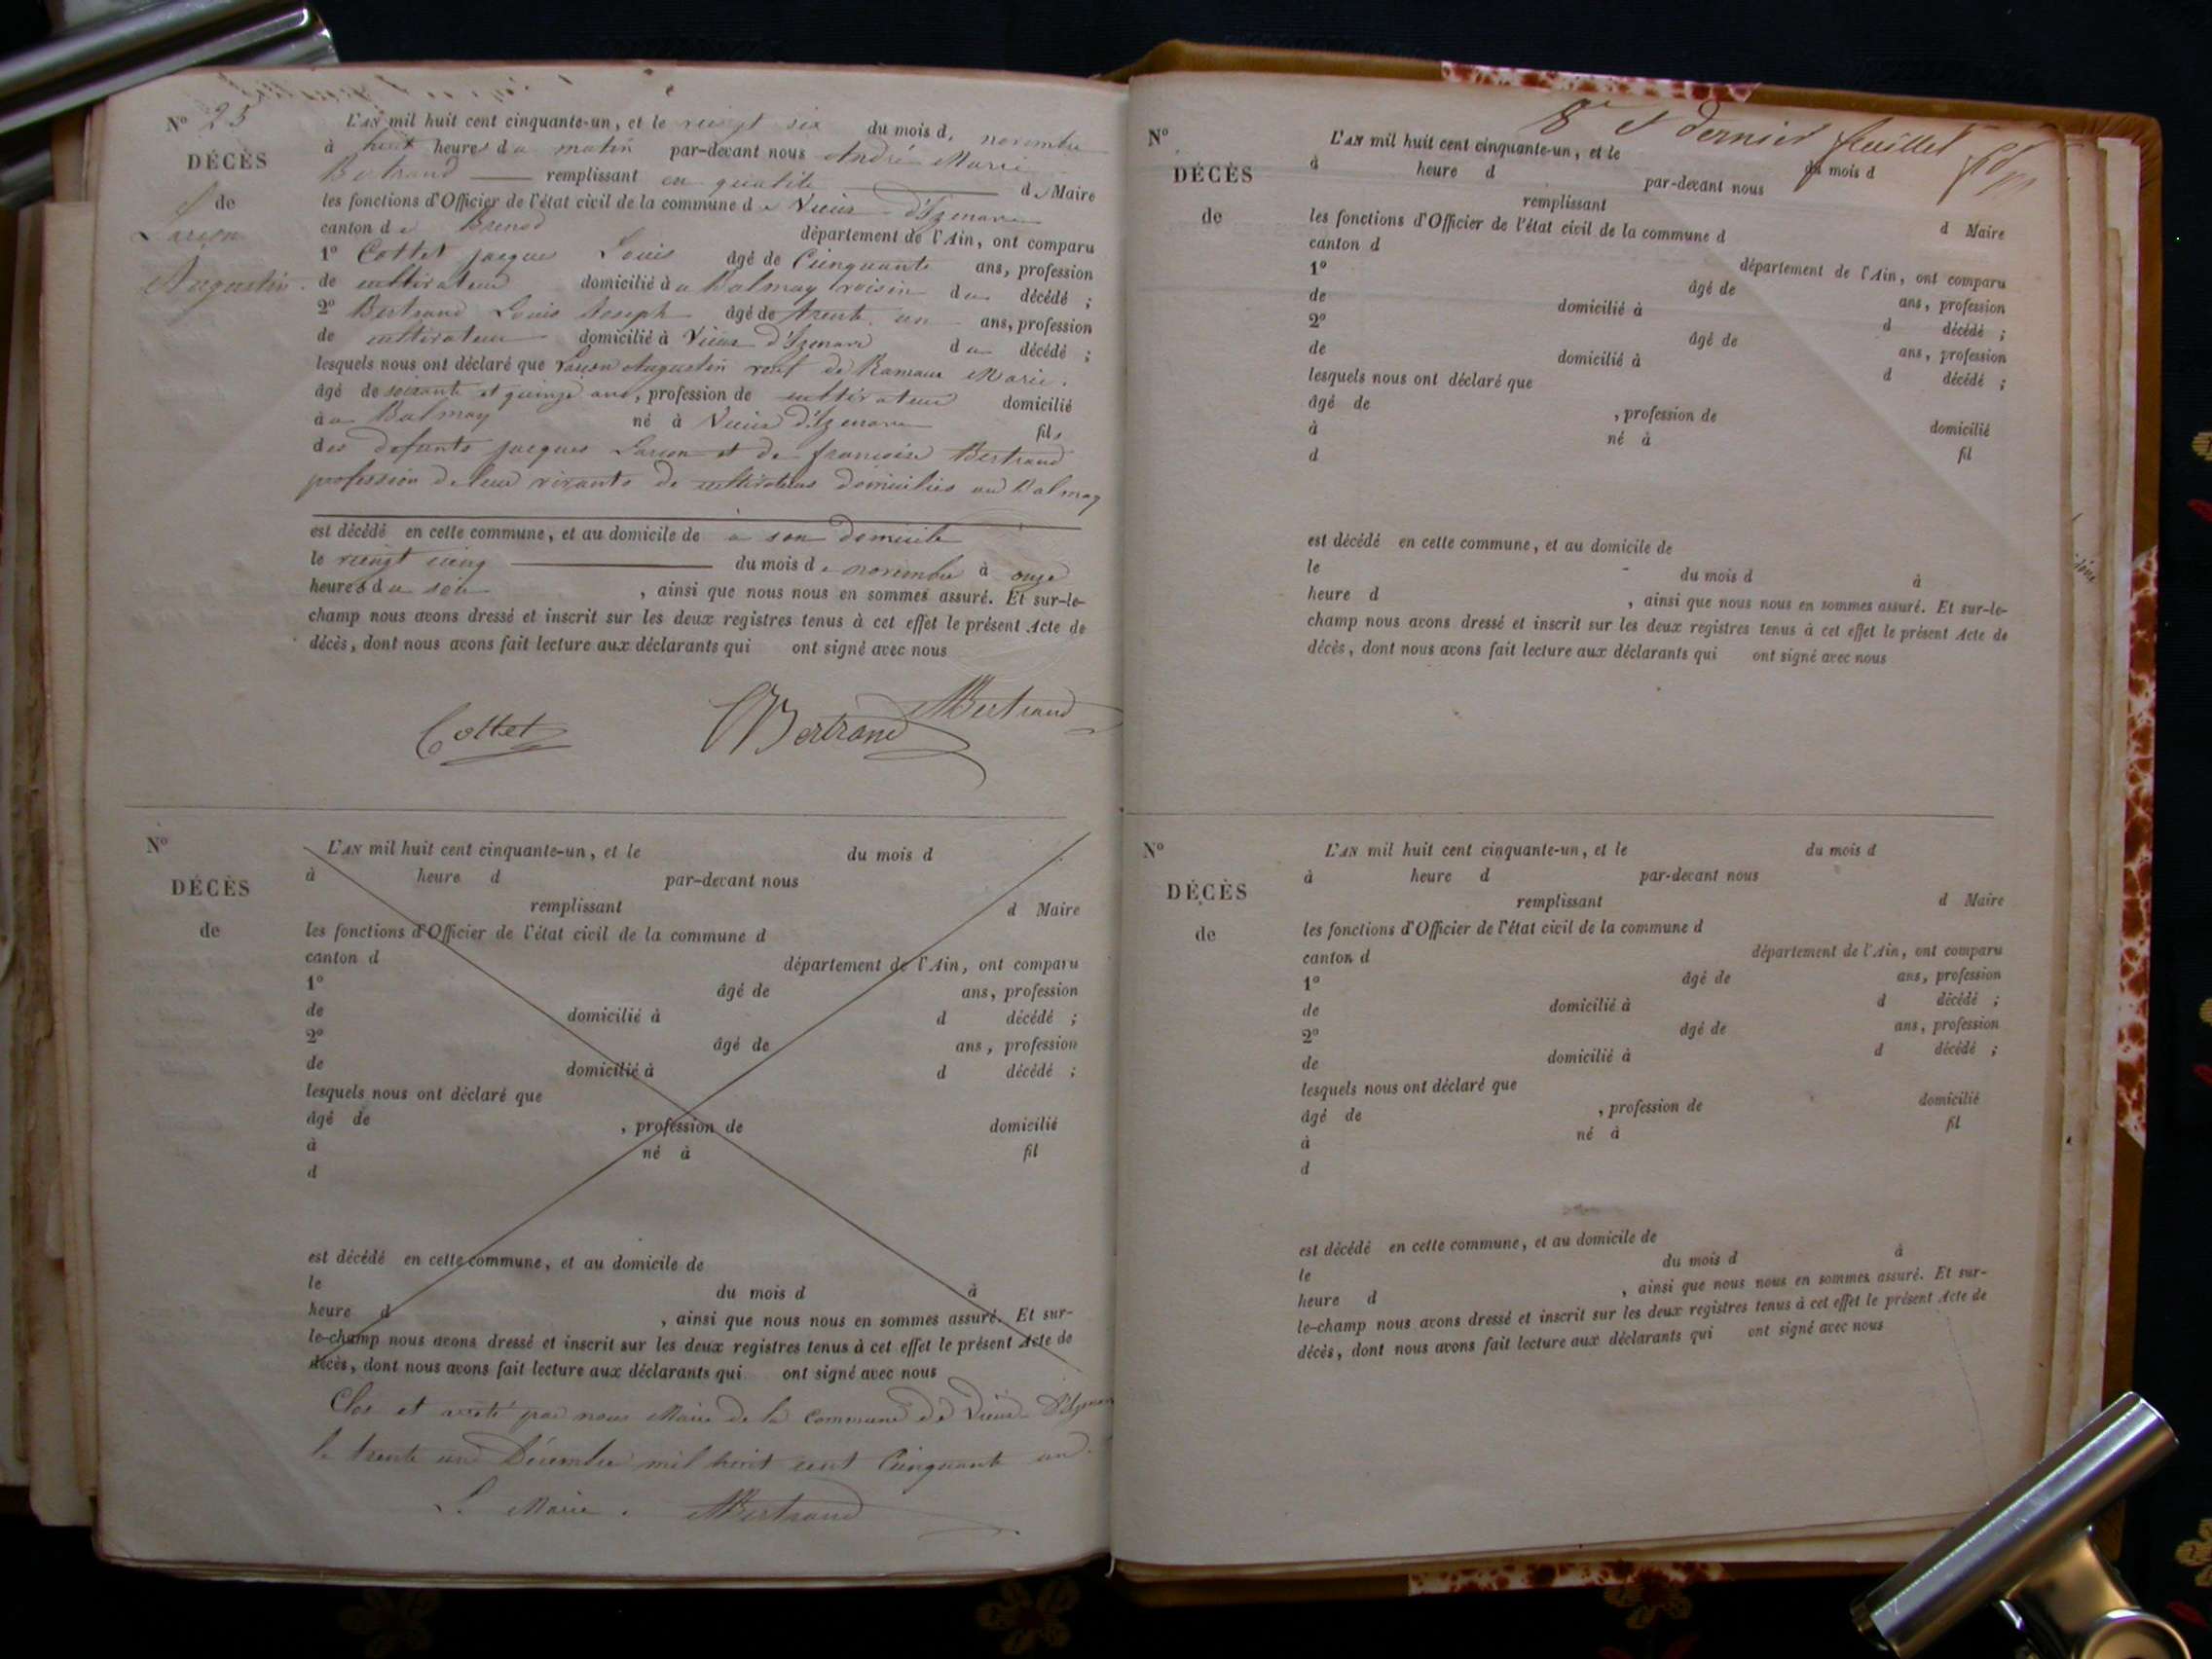 N° 25
DÉCÈS
de
Larçon
Augustin.
L'AN mil huit cent cinquante-un, et le vingt six du mois d novembre
à huit heures du matin par-devant nous André Marie
Bertrand remplissant en qualité de Maire
les fonctions d'Officier de l'état civil de la commune de Vieux d'Izenave
canton de Brenod département de l'Ain, ont comparu
1° Cottet jacques Louis âgé de Cinquante ans, profession
de cultivateur domicilié à u Balmay voisin du décédé ;
2° Bertrand Louis Joseph âgé de trente un ans, profession
de cultivateur domicilié à Vieux d'Izenave du décédé ;
lesquels nous ont déclaré que Larçon Augustin veuf de Rameaux Marie.
âgé de soixante et quinze ans, profession de cultivateur domicilié
à u Balmay né à Vieux d'Izenave fils
des defunts jacques Larçon et de francoise Bertrand
profession de leur vivants de cultivateurs domiciliés au Balmay
est décédé en cette commune, et au domicile de à son domicile
le vingt cinq du mois de novembre à onze
heures du soir , ainsi que nous nous en sommes assuré. Et sur-le-
champ nous avons dressé et inscrit sur les deux registres tenus à cet effet le présent Acte de
décès, dont nous avons fait lecture aux déclarants qui ont signé avec nous
Cottet Bertrand Bertrand
N°
DÉCÈS
de
L'AN mil huit cent cinquante-un, et le du mois d
à heure d par-devant nous
remplissant d Maire
les fonctions d'Officier de l'état civil de la commune d
canton d département de l'Ain, ont comparu
1° âgé de ans, profession
de domicilié à d décédé ;
2° âgé de ans, profession
de domicilié à d décédé ;
lesquels nous ont déclaré que
âgé de , profession de domicilié
à né à fil
d
est décédé en cette commune, et au domicile de
le du mois d à
heure d , ainsi que nous nous en sommes assuré. Et sur-
le-champ nous avons dressé et inscrit sur les deux registres tenus à cet effet le présent Acte de
décès, dont nous avons fait lecture aux déclarants qui ont signé avec nous
Clos et arreté par nous Maire de la Commune de Vieux d'Izenave
le trente un Décembre mil huit cent Cinquante un.
Le Maire. Bertrand
8e et dernier feuillet
N°
DÉCÈS
de
L'AN mil huit cent cinquante-un, et le du mois d
à heure d par-devant nous
remplissant d Maire
les fonctions d'Officier de l'état civil de la commune d
canton d département de l'Ain, ont comparu
1° âgé de ans, profession
de domicilié à d décédé ;
2° âgé de ans, profession
de domicilié à d décédé ;
lesquels nous ont déclaré que
âgé de , profession de domicilié
à né à fil
d
est décédé en cette commune, et au domicile de
le du mois d à
heure d , ainsi que nous nous en sommes assuré. Et sur-le-
champ nous avons dressé et inscrit sur les deux registres tenus à cet effet le présent Acte de
décès, dont nous avons fait lecture aux déclarants qui ont signé avec nous
N°
DÉCÈS
de
L'AN mil huit cent cinquante-un, et le du mois d
à heure d par-devant nous
remplissant d Maire
les fonctions d'Officier de l'état civil de la commune d
canton d département de l'Ain, ont comparu
1° âgé de ans, profession
de domicilié à d décédé ;
2° âgé de ans, profession
de domicilié à d décédé ;
lesquels nous ont déclaré que
âgé de , profession de domicilié
à né à fil
d
est décédé en cette commune, et au domicile de
le du mois d à
heure d , ainsi que nous nous en sommes assuré. Et sur-
le-champ nous avons dressé et inscrit sur les deux registres tenus à cet effet le présent Acte de
décès, dont nous avons fait lecture aux déclarants qui ont signé avec nous